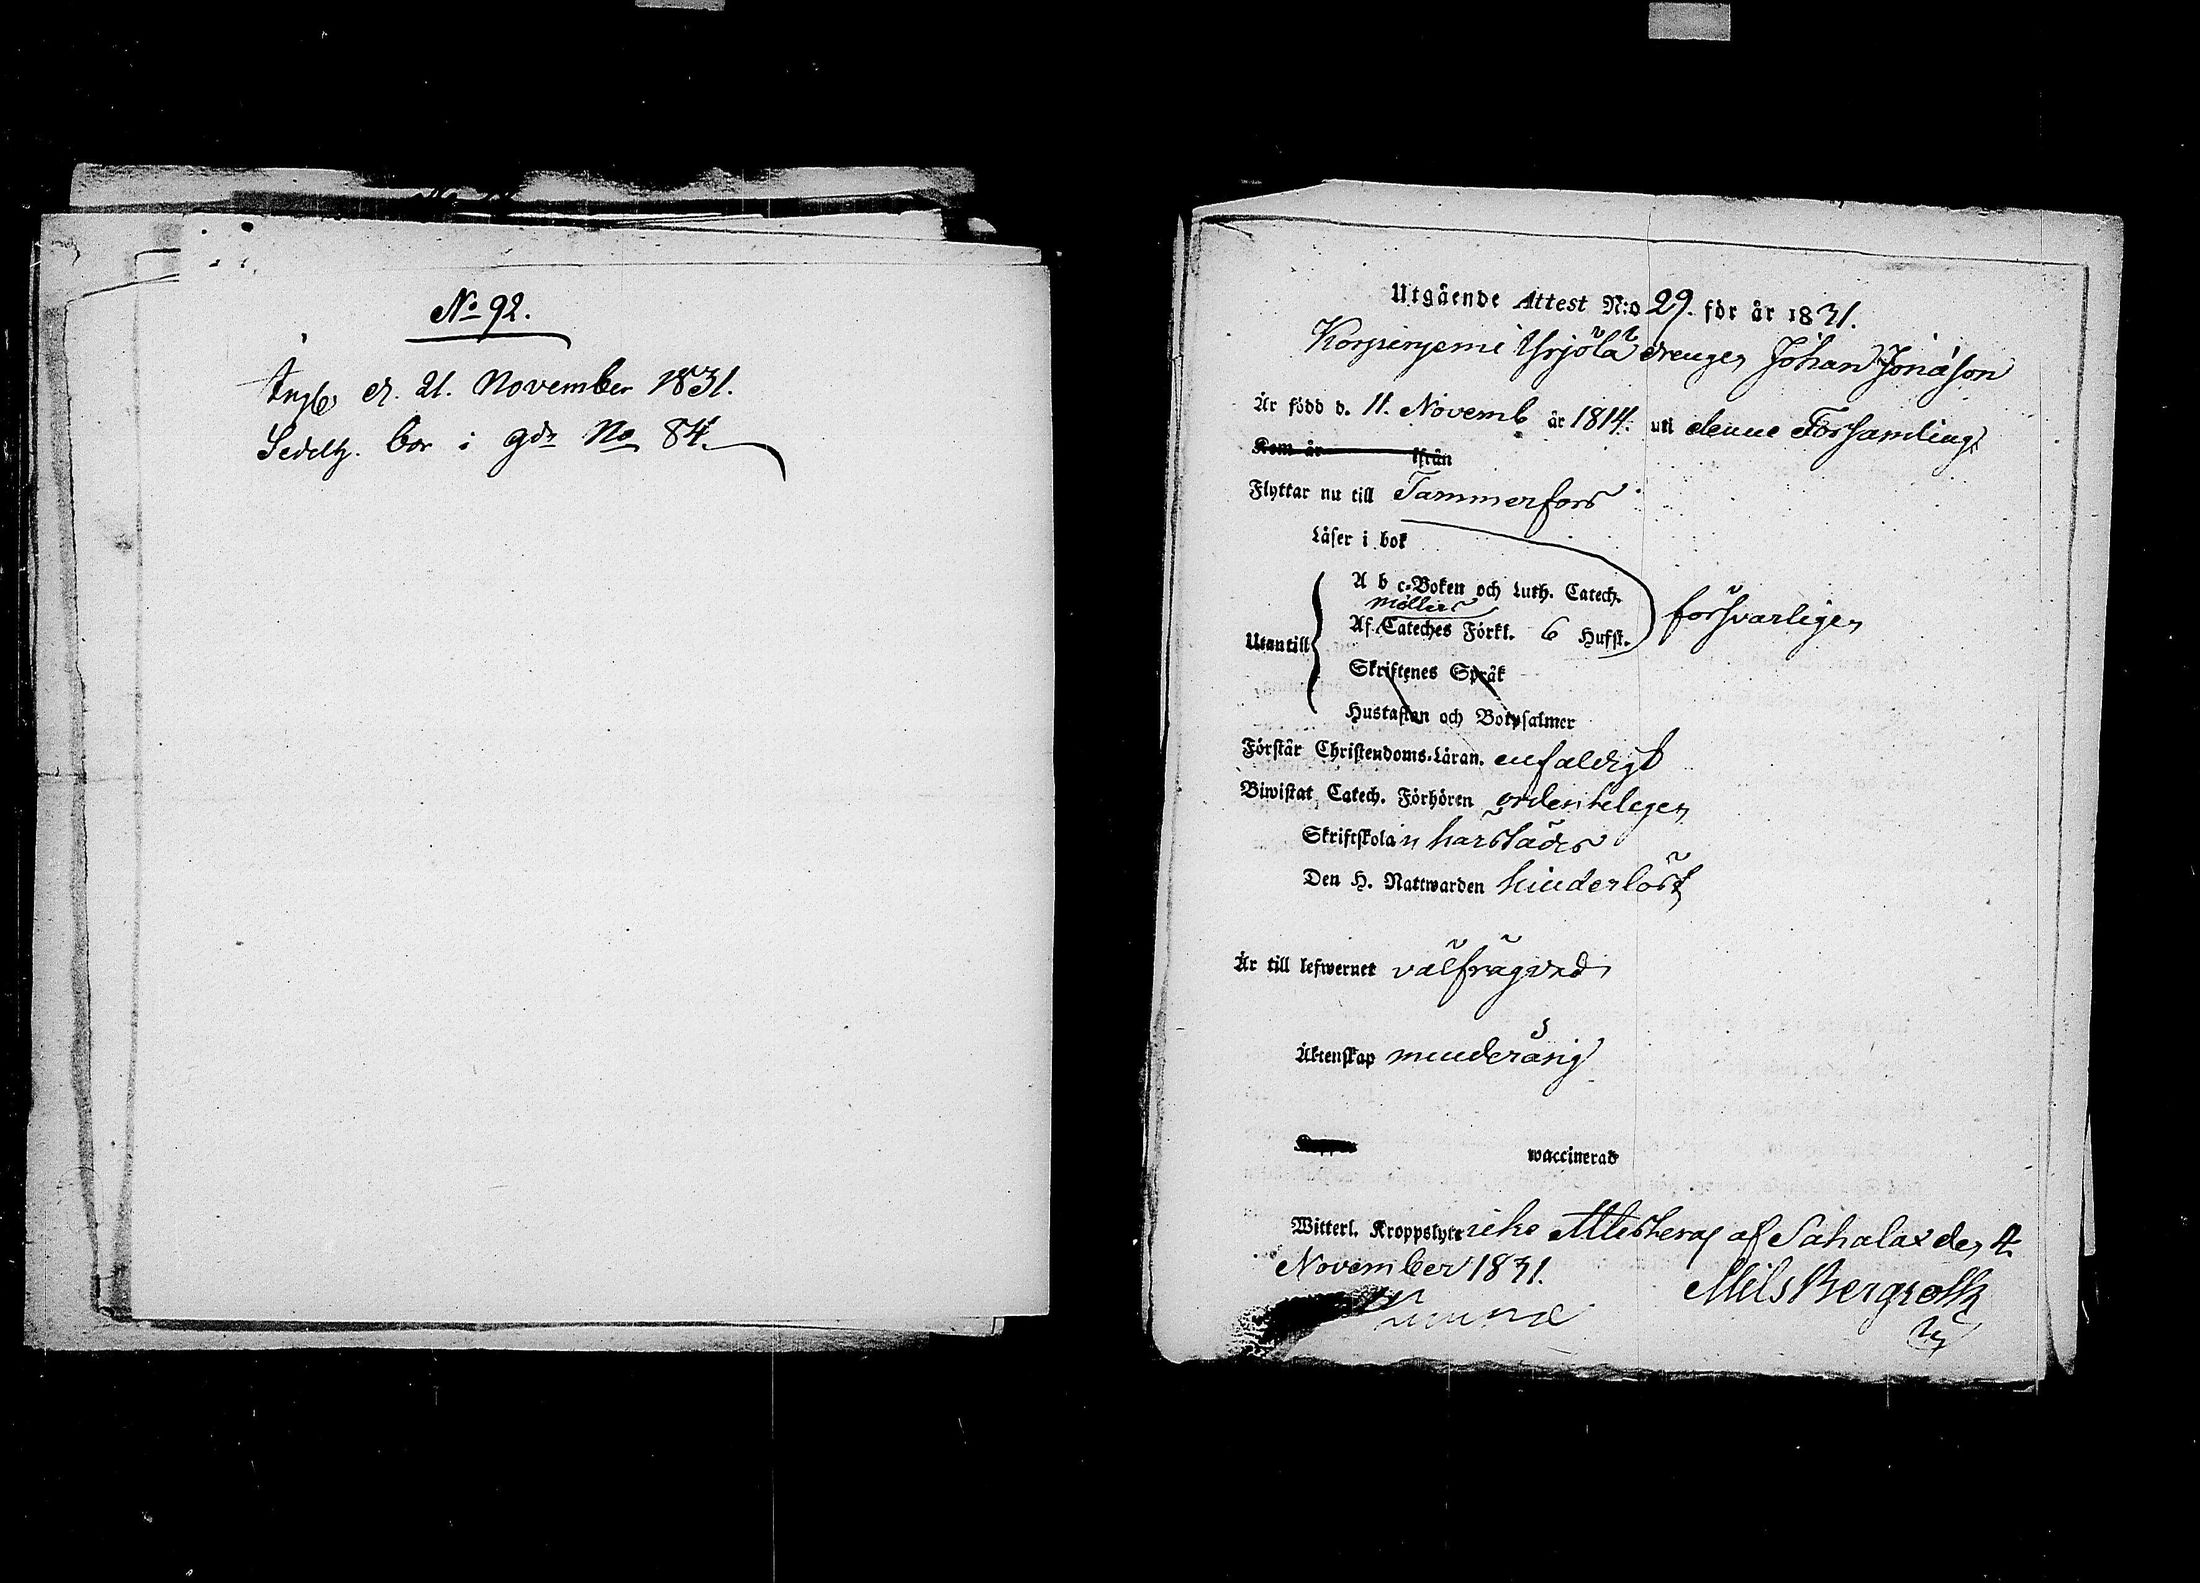 No 92.
d. 21. November 1831.
bor i gdn No 84.
Utgående Attest N:o 29. för år 1831.
Yrjölä drengen Johan Jonasson
Är född d. 11. Novemb år 1814. uti denne Församling
Kom år ifrån
Flyttar nu till Tammerfors
Läser i bok
A b c-Boken och Luth. Catech.
Möllers
Af Cateches Förkl. 6 Hufst.
försvarligen
Utantill
Skriftenes Språk
Hustaflan och Botpsalmer
Förstår Christendoms-Läran. enfaldigt
Biwistat Catech. Förhören ordenteligen
Skriftskolan härstädes
Den H. Nattwarden hinderlöst
Är till lefwernet välfrägdad
Äktenskap minderårig
Koppor waccinerad
Witterl. Kroppslyte icke Attesteras af Sahalax den 4.
November 1831.
Nils Bergroth